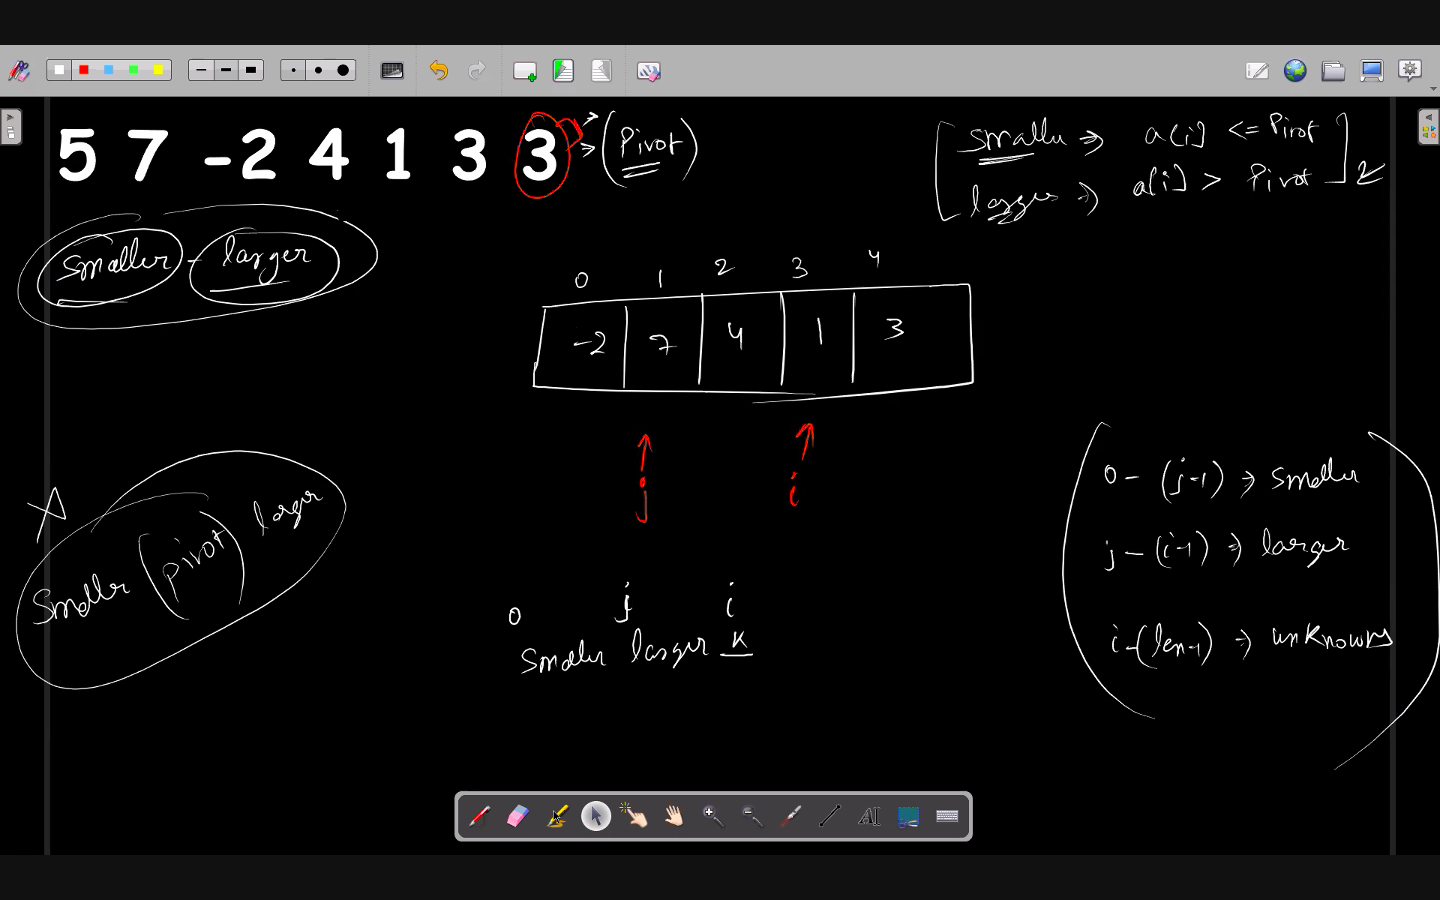 5 7 -2 4 1 3 3 (Pivot)
smaller => a[i] <= Pivot
larger => a[i] > Pivot
smaller - larger
0 1 2 3 4
-2 7 4 1 3
j i
smaller (pivot) larger
0 j i
smaller larger k
0 - (j-1) => smaller
j - (i-1) => larger
i - (len-1) => unknowns
AI